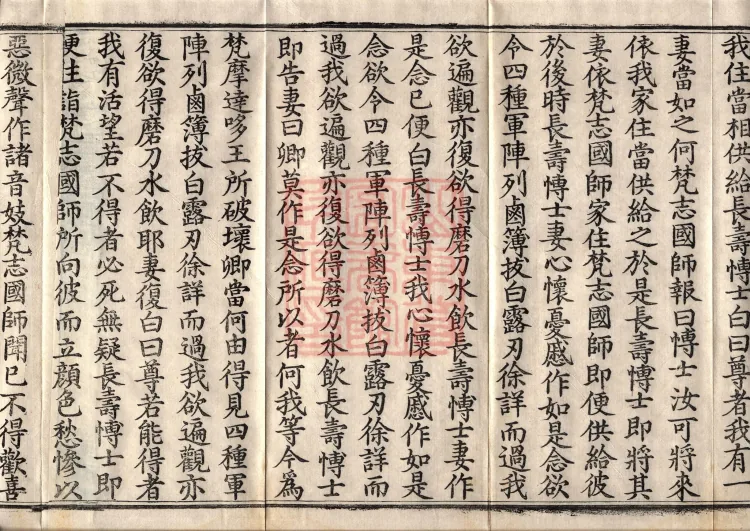 我住當相供給長壽愽士白曰尊者我有一
妻當如之何梵志國師報曰愽士汝可將來
依我家住當供給之於是長壽愽士即將其
妻依梵志國師家住梵志國師即便供給彼
於後時長壽愽士妻心懷憂慼作如是念欲
令四種軍陣列鹵簿拔白露刃徐詳而過我
欲遍觀亦復欲得磨刀水飲長壽愽士妻作
是念已便白長壽愽士我心懷憂慼作如是
念欲令四種軍陣列鹵簿拔白露刃徐詳而
過我欲遍觀亦復欲得磨刀水飲長壽愽士
即告妻曰卿莫作是念所以者何我等今為
梵摩達哆王所破壞卿當何由得見四種軍
陣列鹵簿拔白露刃徐詳而過我欲遍觀亦
復欲得磨刀水飲耶妻復白曰尊若能得者
我有活望若不得者必死無疑長壽愽士即
便往詣梵志國師所向彼而立顔色愁慘以
惡微聲作諸音妓梵志國師聞已不得歡喜